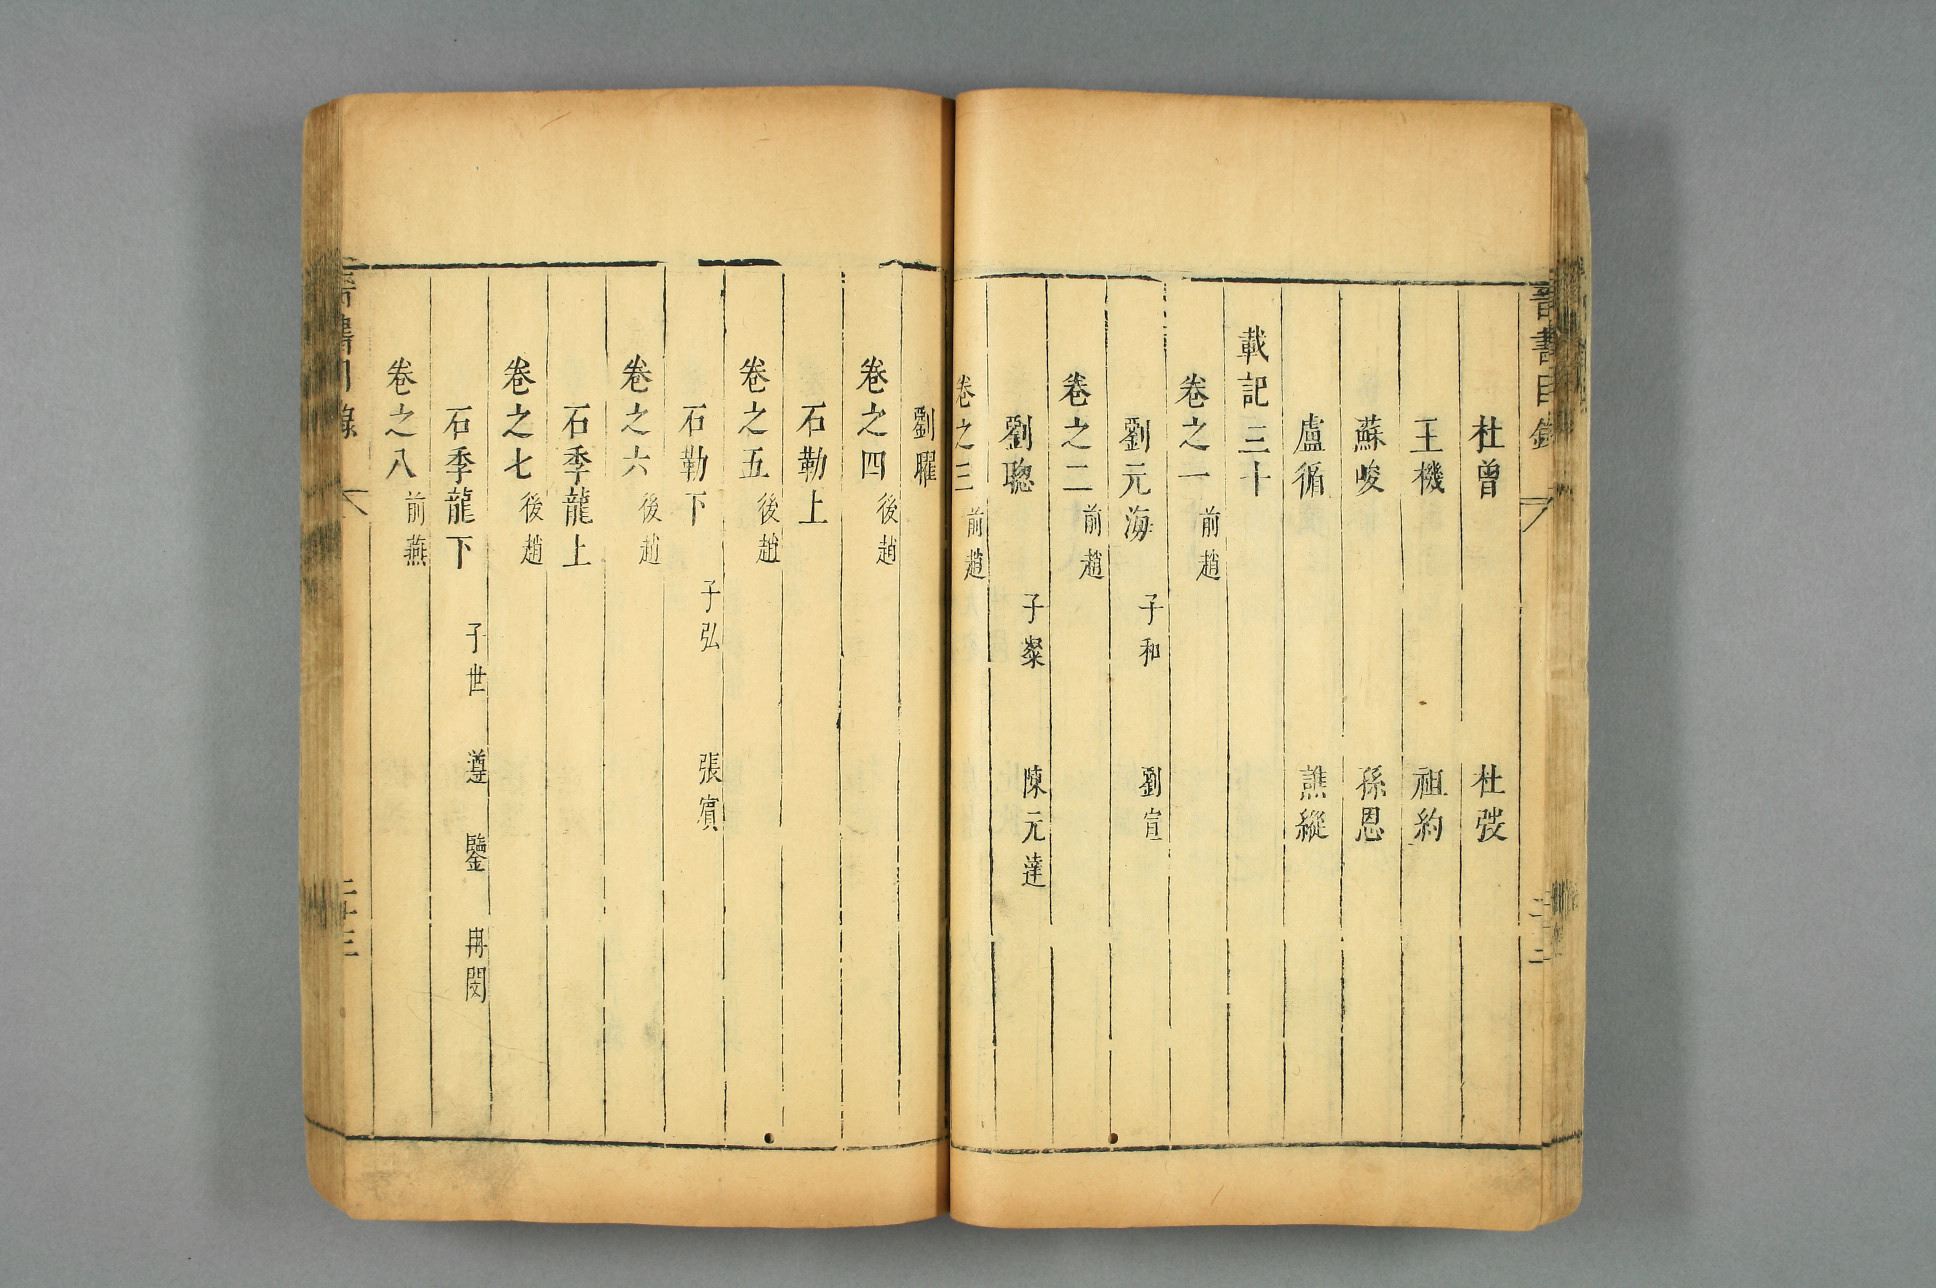 晉書目錄
二十二
杜曾 杜弢
王機 祖約
蘇峻 孫恩
盧循 譙縱
載記三十
卷之一 前趙
劉元海 子和 劉宣
卷之二 前趙
劉聰 子粲 陳元達
卷之三 前趙
劉曜
卷之四 後趙
石勒上
卷之五 後趙
石勒下 子弘 張賓
卷之六 後趙
石季龍上
卷之七 後趙
石季龍下 子世 遵 鑒 冉閔
卷之八 前燕
晉書目錄
二十三